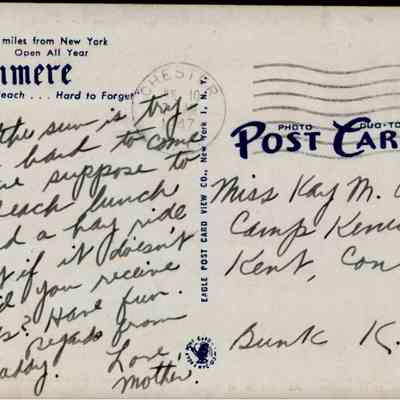 miles from New York
Open All Year
nmere
each . . . Hard to Forget
CHESTER
the sun is try-
hard to come
suppose to
each lunch
d a hay ride
t if it doesn't
d you receive
s? Have fun.
regards from
addy. Love,
Mother.
EAGLE POST CARD VIEW CO., New York 1, N. Y.
PHOTO DUO-TO
POST CAR
Miss Kay M.
Camp Ken
Kent, Con
Bunk K.